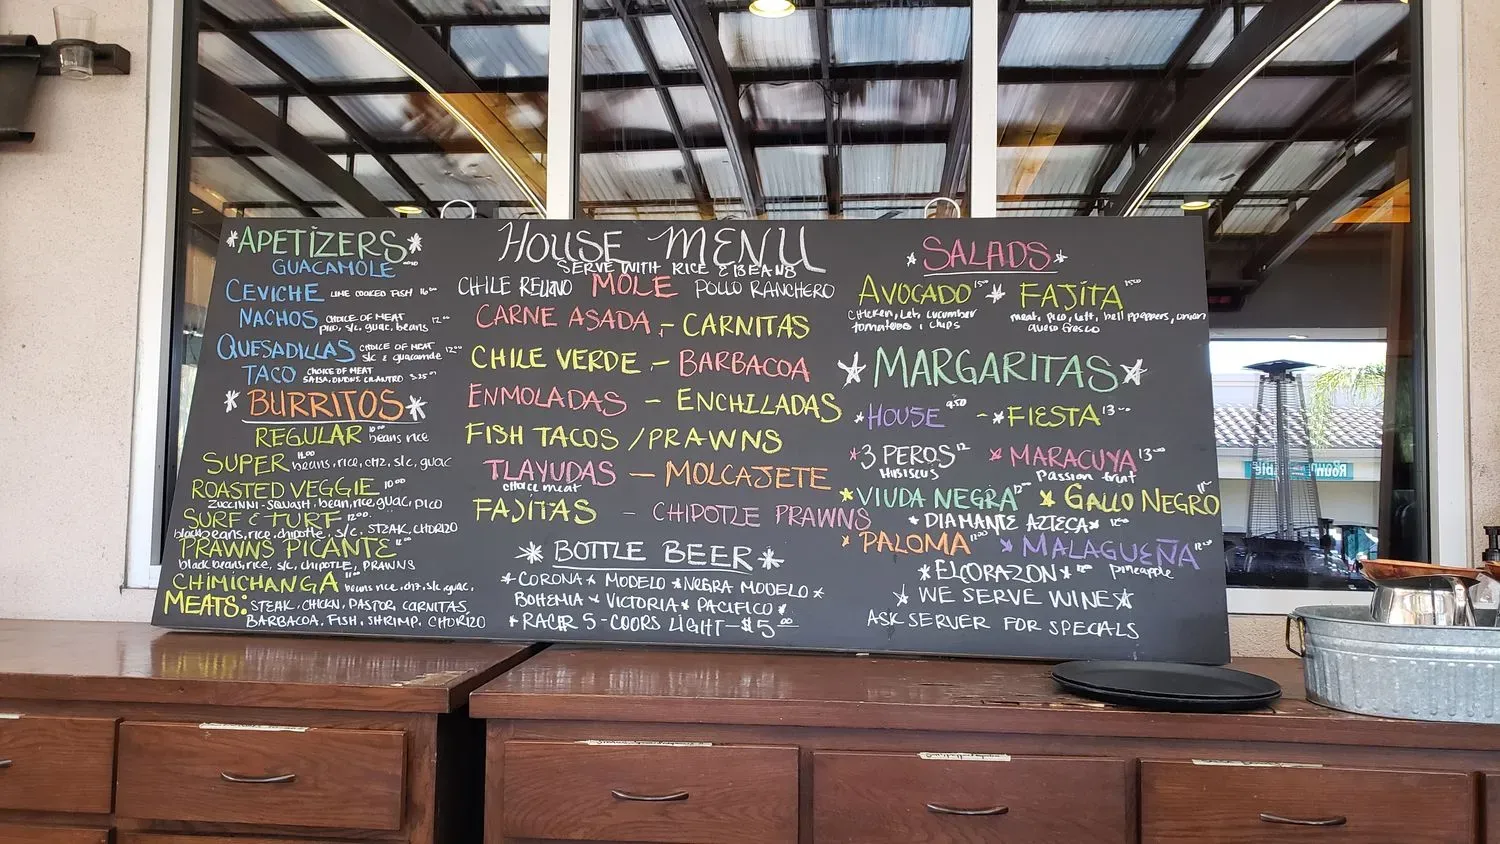 *APETIZERS*
GUACAMOLE
CEVICHE LIME COOKED FISH 16.00
NACHOS CHOICE OF MEAT 12.00
pico, s/c, guac, beans
QUESADILLAS CHOICE OF MEAT 12.00
s/c & guacamole
TACO CHOICE OF MEAT
SALSA, ONIONS, CILANTRO 3.25
*BURRITOS*
REGULAR 10.00 beans rice
SUPER 11.00 beans, rice, chz, s/c, guac
ROASTED VEGGIE 10.00
ZUCCINNI-SQUASH, bean, rice, guac, pico
SURF & TURF 12.00
black beans, rice, chipotle, s/c, STEAK, CHORIZO
PRAWNS PICANTE
black beans, rice, s/c, CHIPOTLE, PRAWNS
CHIMICHANGA 11.00 beans rice, chz, s/c, guac,
MEATS: STEAK, CHICKN, PASTOR, CARNITAS,
BARBACOA, FISH, SHRIMP, CHORIZO
HOUSE MENU
SERVE WITH RICE & BEANS
CHILE RELLENO MOLE POLLO RANCHERO
CARNE ASADA - CARNITAS
CHILE VERDE - BARBACOA
ENMOLADAS - ENCHILADAS
FISH TACOS / PRAWNS
TLAYUDAS - MOLCAJETE
choice meat
FAJITAS - CHIPOTLE PRAWNS
*BOTTLE BEER*
*CORONA* MODELO *NEGRA MODELO*
BOHEMIA * VICTORIA * PACIFICO *
*RACER 5 - COORS LIGHT - $5.00
*SALADS*
AVOCADO 15.00 * FAJITA 15.00
chicken, Let, cucumber
tomatoes, chips
meat, pico, lett, bell peppers, onion
queso fresco
*MARGARITAS*
*HOUSE 9.50 - *FIESTA 13
*3 PEROS 12 * MARACUYA 13
HIBISCUS Passion fruit
*VIUDA NEGRA 12 * GALLO NEGRO
*DIAMANTE AZTECA* 12.00
*PALOMA * MALAGUEÑA
*EL CORAZON* pineapple
* WE SERVE WINE*
ASK SERVER FOR SPECIALS